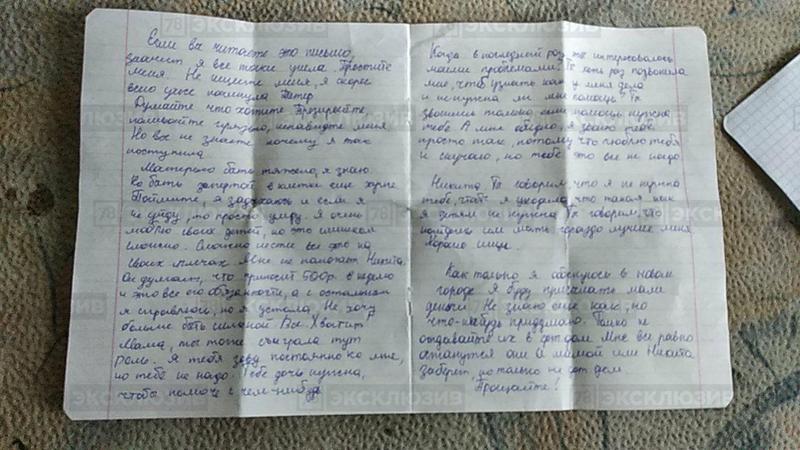 Если вы читаете это письмо,
значит я все таки ушла. Простите
меня. Не ищите меня, я скорее
всего уже покинула Питер
Думайте что хотите. Презирайте,
поливайте грязью, ненавидте меня
Но вы не знаете почему я так
поступила
Матерью быть тяжело, я знаю.
Но быть запертой в клетки еще хуже
Поймите я задыхаюсь и если я
не уйду, то просто умру. Я очень
люблю своих детей, но это слишком
сложно. Сложно нести все это на
своих плечах. Мне не помогает Никита.
Он думает, что приносит 500р в неделю
и это все его обязанности, а с остальным
я справлюсь, но я устала. Не хочу
больше быть сильной Все. Хватит
Мама, ты тоже сыграла тут
роль. Я тебя зову постоянно ко мне,
но тебе не надо. Тебе дочь нужна,
чтобы помочь с чем-нибудь
Когда в последний раз ты интересовалась
моими проблемами? Ты хоть раз позвонила
мне, чтоб узнать как у меня дела
и не нужна ли мне помощь? Ты
звонишь только, если помощь нужна
тебе. А мне обидно, я звоню тебе
просто так, потому что люблю тебя
и скучаю, но тебе это все не надо
Никита Ты говорил, что я не нужна
тебе, чтоб я уходила, что такая как
я детям не нужна Ты говорил, что
найдешь им мать гораздо лучше меня
Хорошо ищи.
Как только я обоснуюсь в новом
городе Я буду присылать маме
деньги. Не знаю еще как, но
что-нибудь придумаю. Только не
отдавайте их в дет дом. Мне все равно
останутся они с мамой или Никита
заберет, но только не дет дом
Прощайте!
78 ЭКСКЛЮЗИВ